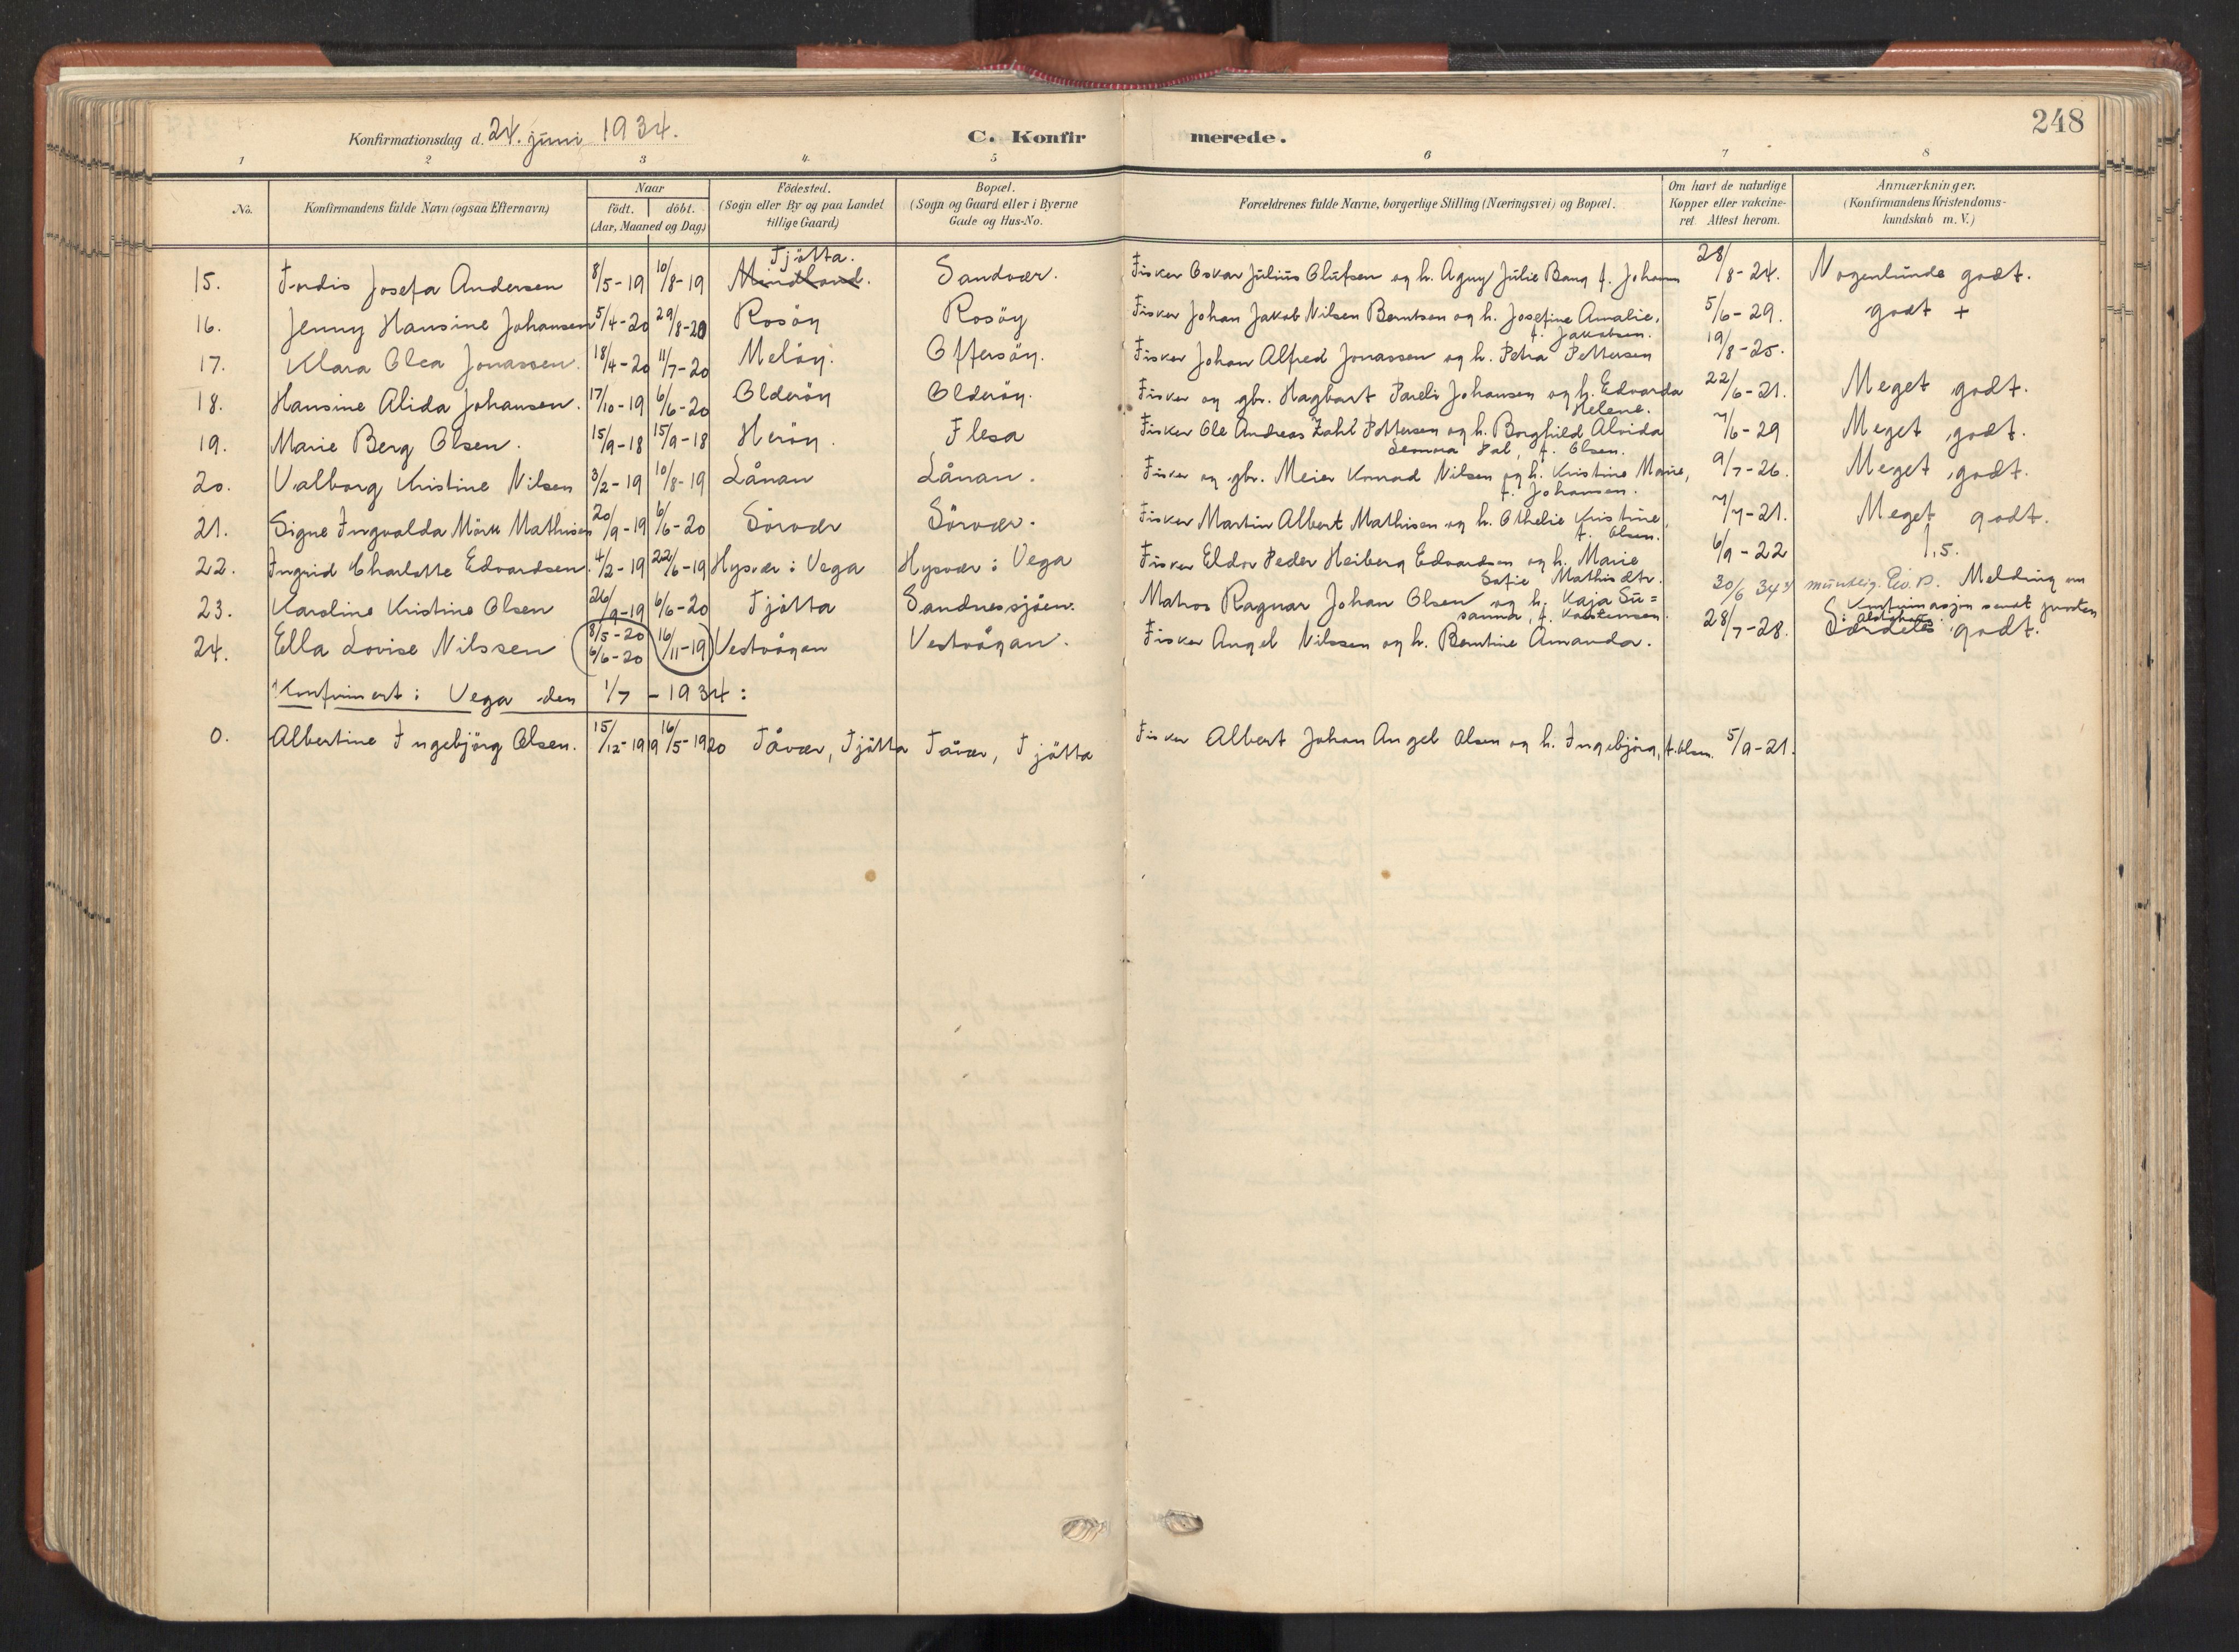 248
Konfirmationsdag d. 24. juni 1934.
C. Konfir merede.
1 2 3 4. 5 6 7 8
No.
Konfirmandens fulde Navn (ogsaa Efternavn)
Naar
födt. döbt.
(Aar, Maaned og Dag)
Födested.
(Sogn eller By og paa Landet
tillige Gaard)
Bopæl.
(Sogn og Gaard eller i Byerne
Gade og Hus-No.
Forældrenes fulde Navne, borgerlige Stilling (Næringsvei) og Bopæl.
Om havt de naturlige
Kopper eller vakcine-
ret. Attest herom.
Anmærkninger.
(Konfirmandens Kristendoms-
kundskab m. V.)
Tjötta.
15. Fordis Josefa Andersen 8/5-19 10/8-19 Mindland. Sandvær. Fisker Oskar Julius Olufsen og h. Agny Julie Bang f. Johans 28/8-24. Nogenlunde godt.
16. Jenny Hansine Johansen 5/4-20 29/8-20 Rosöy Rosöy Fisker Johan Jakob Nilsen Berntsen og h. Josefine Amalie, 5/6-29. godt +
f. Jakobsen.
17. Klara Olea Jonassen. 18/4-20 11/7-20 Melöy. Offersöy. Fisker Johan Alfred Jonassen og h. Petra Pettersen 19/8-25.
18. Hansine Alida Johansen. 17/10-19 6/6-20 Olderöy Olderöy. Fisker og gbr. Hagbart Pareli Johansen og h. Edvarda 22/6-21. Meget godt.
Helene.
19. Marie Berg Olsen. 15/9-18 15/9-18 Heröy. Flesa Fisker Ole Andreas Zahl Pettersen og h. Borghild Alvida 7/6-29 Meget godt.
Leonora Pal, f. Olsen.
20. Valborg Kristine Nilsen 3/2-19 10/8-19 Lånan Lånan. Fisker og gbr. Meier Konrad Nilsen og h. Kristine Marie, 9/7-26. Meget godt.
f. Johansen.
21. Signe Ingvalda Mörk Mathisen 20/9-19 6/6-20 Sörvær Sörvær. Fisker Martin Albert Mathisen og h. Othelie Kristine, 7/7-21. Meget godt.
f. Olsen.
22. Ingrid Charlotte Edvardsen. 4/2-19 22/6-19 Hysvær i Vega Hysvær i Vega Fisker Eldor Peder Heiberg Edvardsen og h. Marie 6/9-22 1,5.
Sofie Mathisdtr.
23. Karoline Kristine Olsen 26/9-19 6/6-20 Tjötta Sandnessjöen. Matros Ragnar Johan Olsen og h. Kaja Su= 30/6 34 Melding om
sanna, f. Karstensen. Konfirmasjon sendt
24. Ella Lovise Nilssen 8/5-20 6/6-20 16/11-19 Vestvågan Vestvågan. Fisker Angel Nilssen og h. Berntine Amanda. 28/7-28. Særdeles godt.
Konfirmert i Vega den 1/7-1934:
0. Albertine Ingebjörg Olsen. 15/12-1919 16/5-1920 Tåvær, Tjötta Tåvær, Tjötta Fisker Albert Johan Angel Olsen og h. Ingebjörg, f. Olsen. 5/9-21.